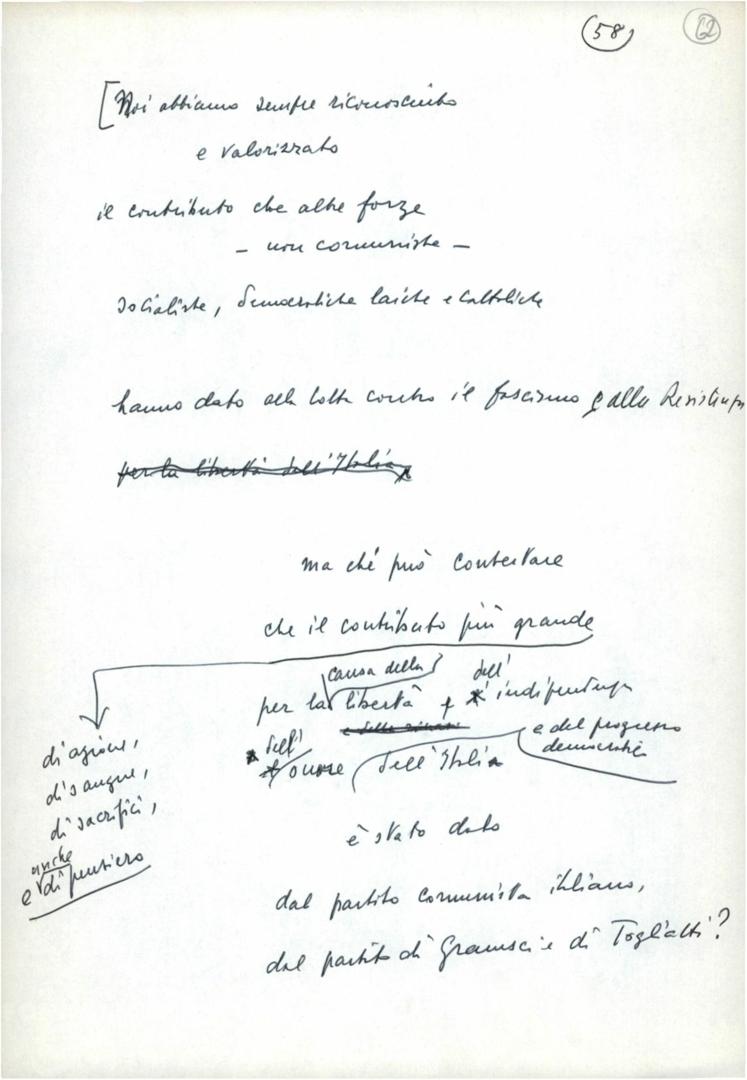 58 62
[Noi abbiamo sempre riconosciuto
e valorizzato
il contributo che altre forze
– non comuniste –
socialiste, democratiche laiche e cattoliche
hanno dato alla lotta contro il fascismo e alla Resistenza
per la libertà dell'Italia
ma chi può contestare
che il contributo più grande
causa della dell'
per la libertà e indipendenza
e del progresso
democratico
dell'
onore dell'Italia
di azione,
di sangue,
di sacrifici,
anche
e di pensiero
è stato dato
dal partito comunista italiano,
dal partito di Gramsci e di Togliatti?